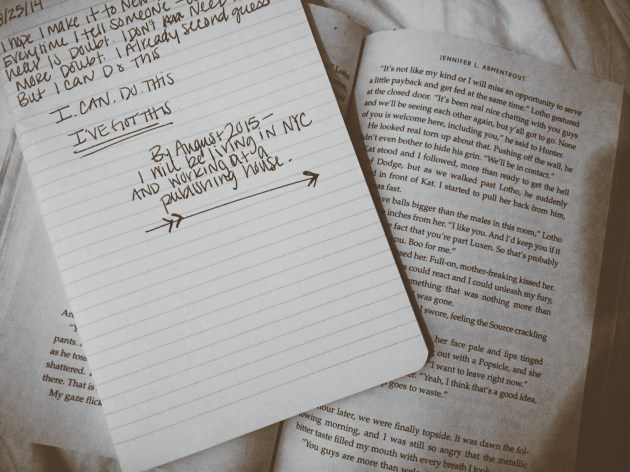 /25/14
I hope I make it to New
Everytime I tell someone
hear is Doubt. I Dont Need
More Doubt. I Already second guess
But I can Do This
I. CAN. DO. THIS
I'VE GOT THIS
By August 2015-
I will be living in NYC
AND working at a
publishing house.
JENNIFER L. ARMENTROUT
"It's not like my kind or I will miss an opportunity to serve
a little payback and get fed at the same time." Lotho gestured
at the closed door. "It's been real nice chatting with you guys
and we'll be seeing each other again, but y'all got to go. None
of you is welcome here, including you," he said to Hunter.
He looked real torn up about that. Pushing off the wall, he
dn't even bother to hide his grin. "We'll be in contact."
Kat stood and I followed, more than ready to get the hell
of Dodge, but as we walked past Lotho, he suddenly
d in front of Kat. I started to pull her back from him,
as fast.
ve balls bigger than the males in this room," Lotho
inches from her. "I like you. And I'd keep you if it
fact that you're part Luxen. So that's probably
ou. Boo for me."
sed her. Full-on, mother-freaking kissed her.
could react and I could unleash my fury,
mething that was nothing more than
was gone.
I swore, feeling the Source crackling
her face pale and lips tinged
out with a Popsicle, and she
"I want to leave right now."
"Yeah, I think that's a good idea,
goes to waste."
our later, we were finally topside. It was dawn the fol-
lowing morning, and I was still so angry that the metallic
bitter taste filled my mouth with every breath I too
"You guys are more than wel
An
"Y
pants.
as he toss
shattered.
there. That is
My gaze flick